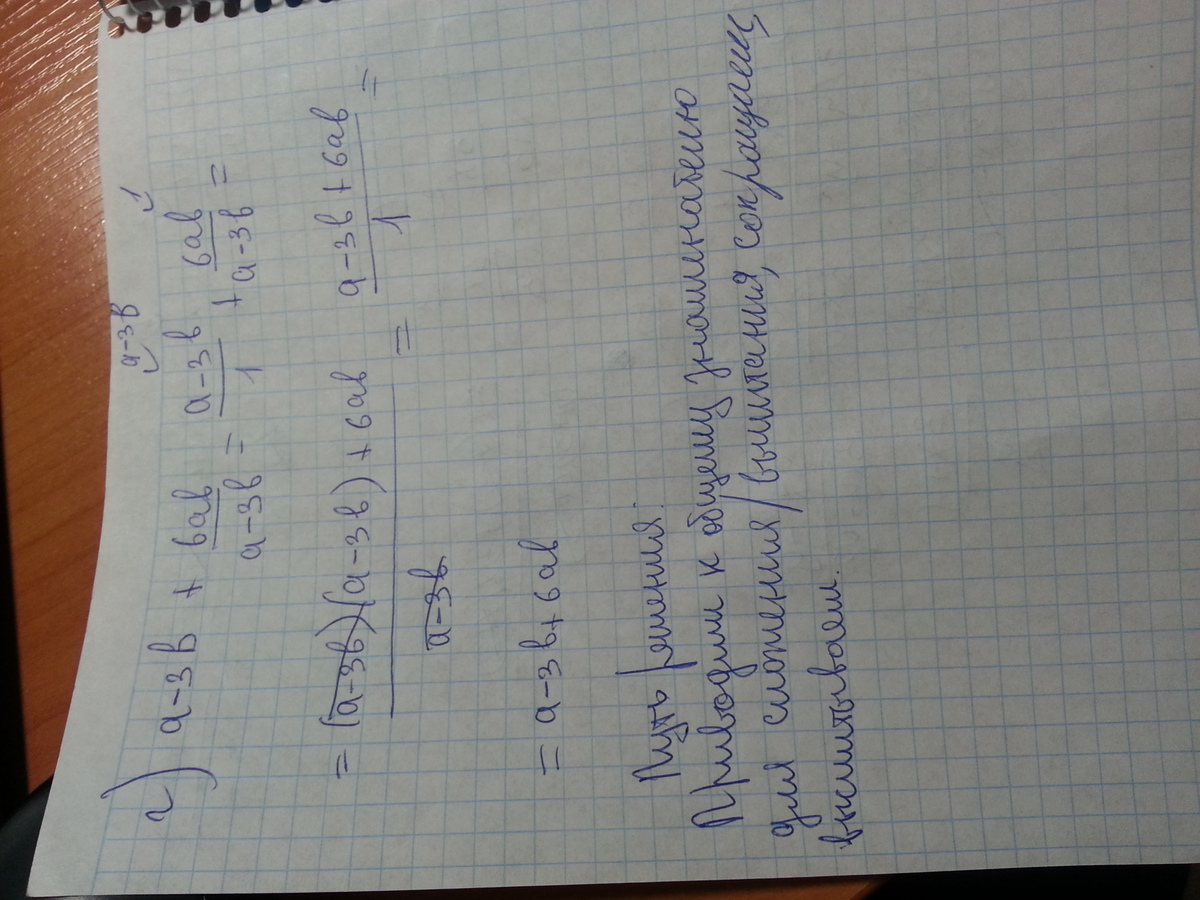 г) a-3b + 6ab/a-3b = a-3b/1 ⌣a-3b + 6ab/a-3b ⌣1 =
= (a-3b)(a-3b)+6ab/a-3b = a-3b+6ab/1 =
= a-3b+6ab
Путь решения:
Приводим к общему знаменателю
для сложения/вычитания, сокращаем,
высчитываем.